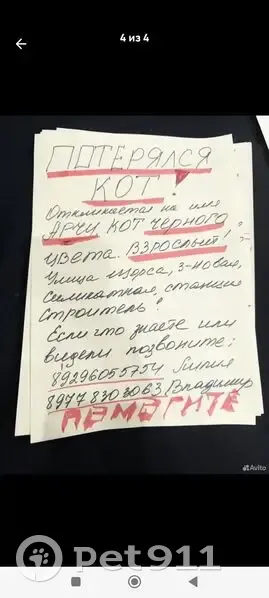 4 из 4
ПОТЕРЯЛСЯ
КОТ!
Откликается на имя
АРЧИ КОТ ЧЕРНОГО
цвета. ВЗРОСЛЫЙ!
Улица Щорса, 3-Новая,
Силикатная, станция
Строитель!
Если что знаете или
видели позвоните:
89296055754 Лилия
89778303063 Владимир
ПОМОГИТЕ
Avito
pet911